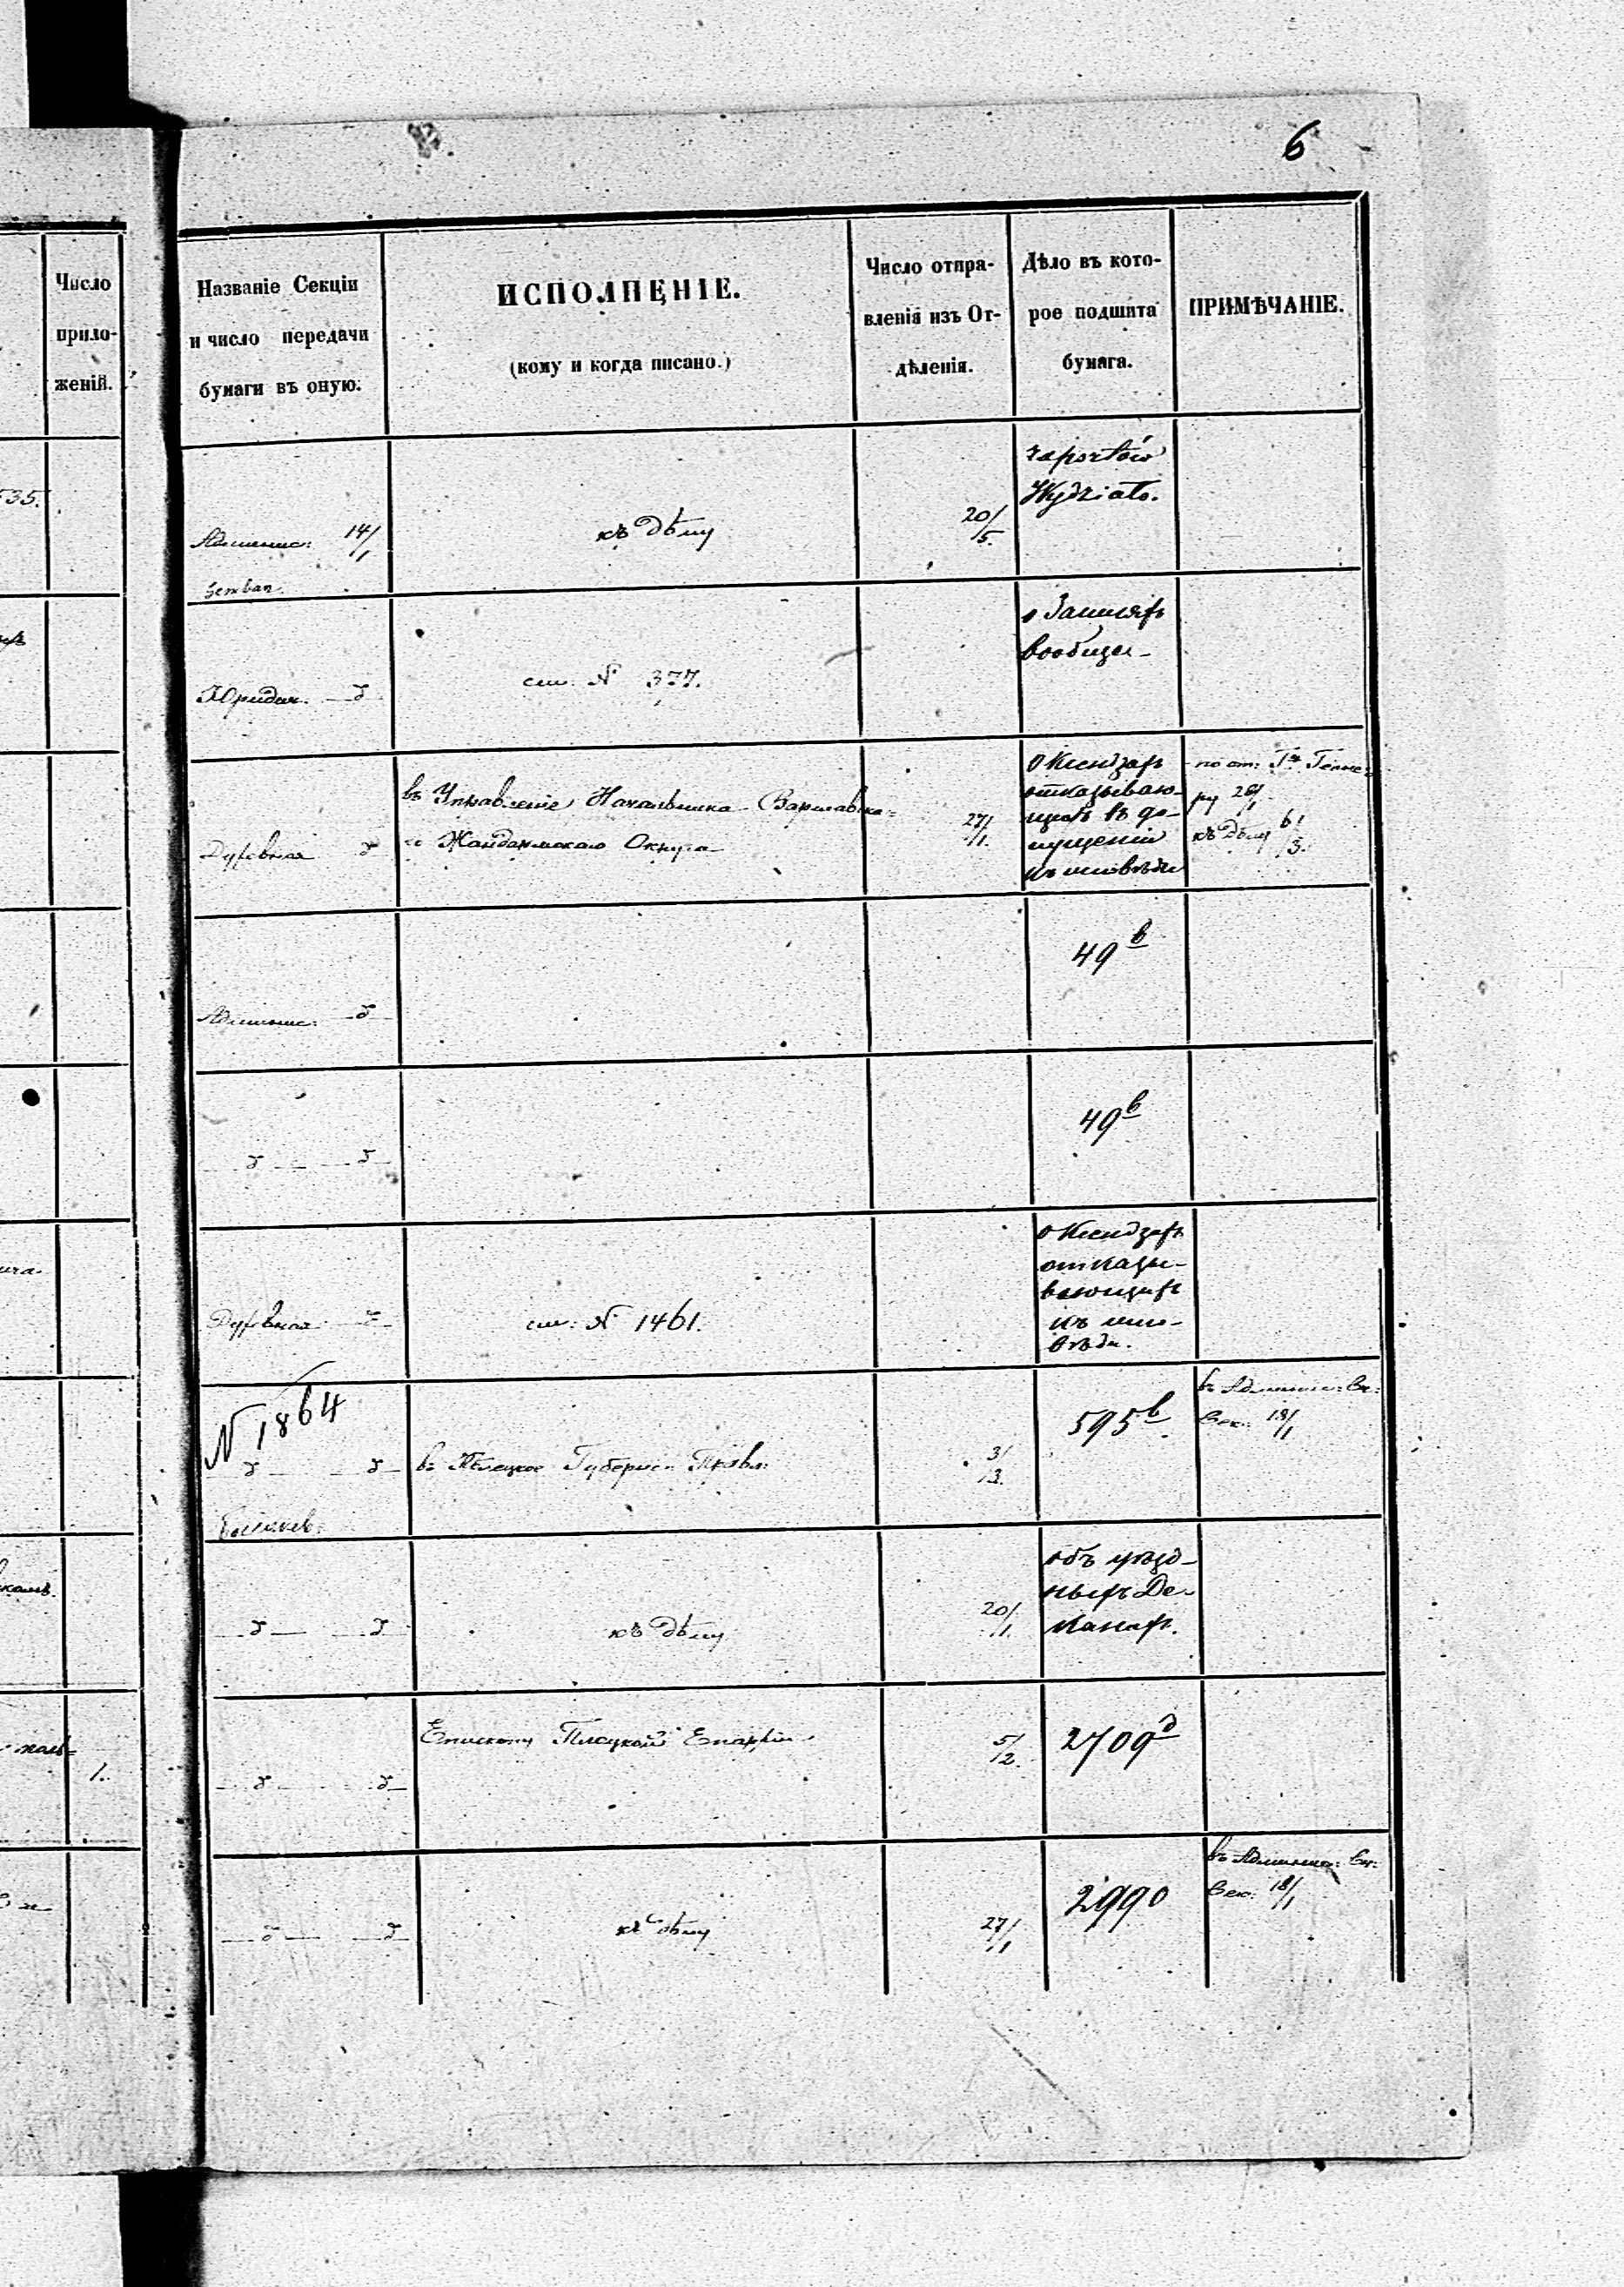 6
Число
прило-
женій.
Названіе Секціи
и число передачи
бумаги въ оную.
ИСПОЛНЕНІЕ.
(кому и когда писано.)
Число отпра-
вленія изъ От-
дѣленія.
Дѣло въ кото-
рое подшита
бумага.
ПРИМѢЧАНІЕ.
535.
Админис: 14/1
къ дѣлу
20/5.
raportów
Wydziału.
Юридич. — д
см. N 377.
о
вообще
Духовная д
въ Управленіе Начальника Варшавска=
го Жандармскаго Округа
27/1.
о Ксендзахъ
отказываю-
щихъ въ до-
пущеніи
къ исповѣди
по от:
ру 28/1
къ дѣлу 6/3.
Админис: — д —
49 в
— д — — д —
49 в
Духовная — д —
см: N 1461.
о Ксендзахъ
отказы-
вающихъ
къ испо-
вѣди.
N 1864
д — — д —
въ Губернс: Правл:
3/13.
595 в
въ Админис:
Сек: 18/1
— д — — д —
къ дѣлу
20/1.
объ уѣзд-
ныхъ Де-
канахъ.
1.
— д — — д —
Епископу Плоцкой Епархіи
5/12.
2709 д
— д — — д —
къ дѣлу
27/1
2990
въ Админис:
Сек: 18/1